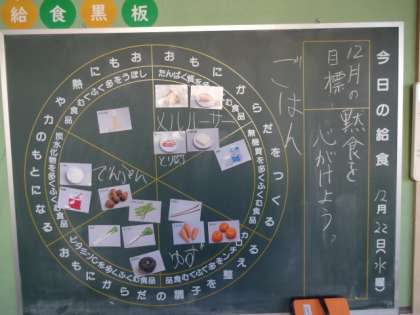 給食黒板
今日の給食 12月22日(水曜)
12月の目標
黙食を心がけよう
ごはん
おもにからだをつくる
たんぱく質を多くふくむ食品
無機質を多くふくむ食品
メルルーサ
とり肉
おもにからだの調子を整える
カロチンを多くふくむ食品
ビタミンCを多くふくむ食品
ゆず
おもに熱や力のもとになる
炭水化物を多くふくむ食品
しぼうを多くふくむ食品
でんぷん